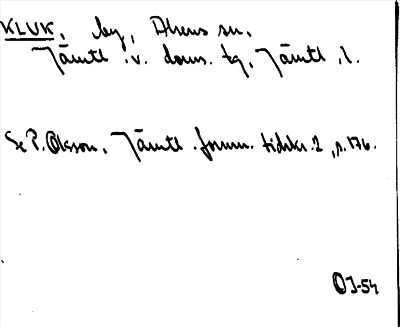 KLUK, by, Alsens sn,
Jämtl. v. doms. tg, Jämtl. l.
Se P. Olsson, Jämtl. fornm. tidskr. 2, s. 176.
OJ-54